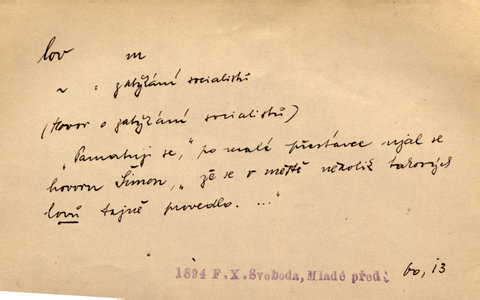 lov m
~ : zatýkání socialistů
(Hovor o zatýkání socialistů)
„Pamatuji se,“ po malé přestávce ujal se
hovoru Šimon, „že se v městě několik takových
lovů tajně provedlo. ...“
1894 F.X.Svoboda, Mladé před.
60, 13